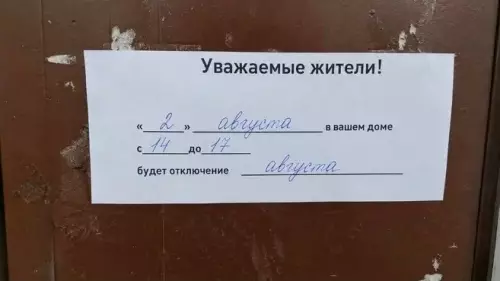 Уважаемые жители!
« 2 » августа в вашем доме
с 14 до 17
будет отключение августа